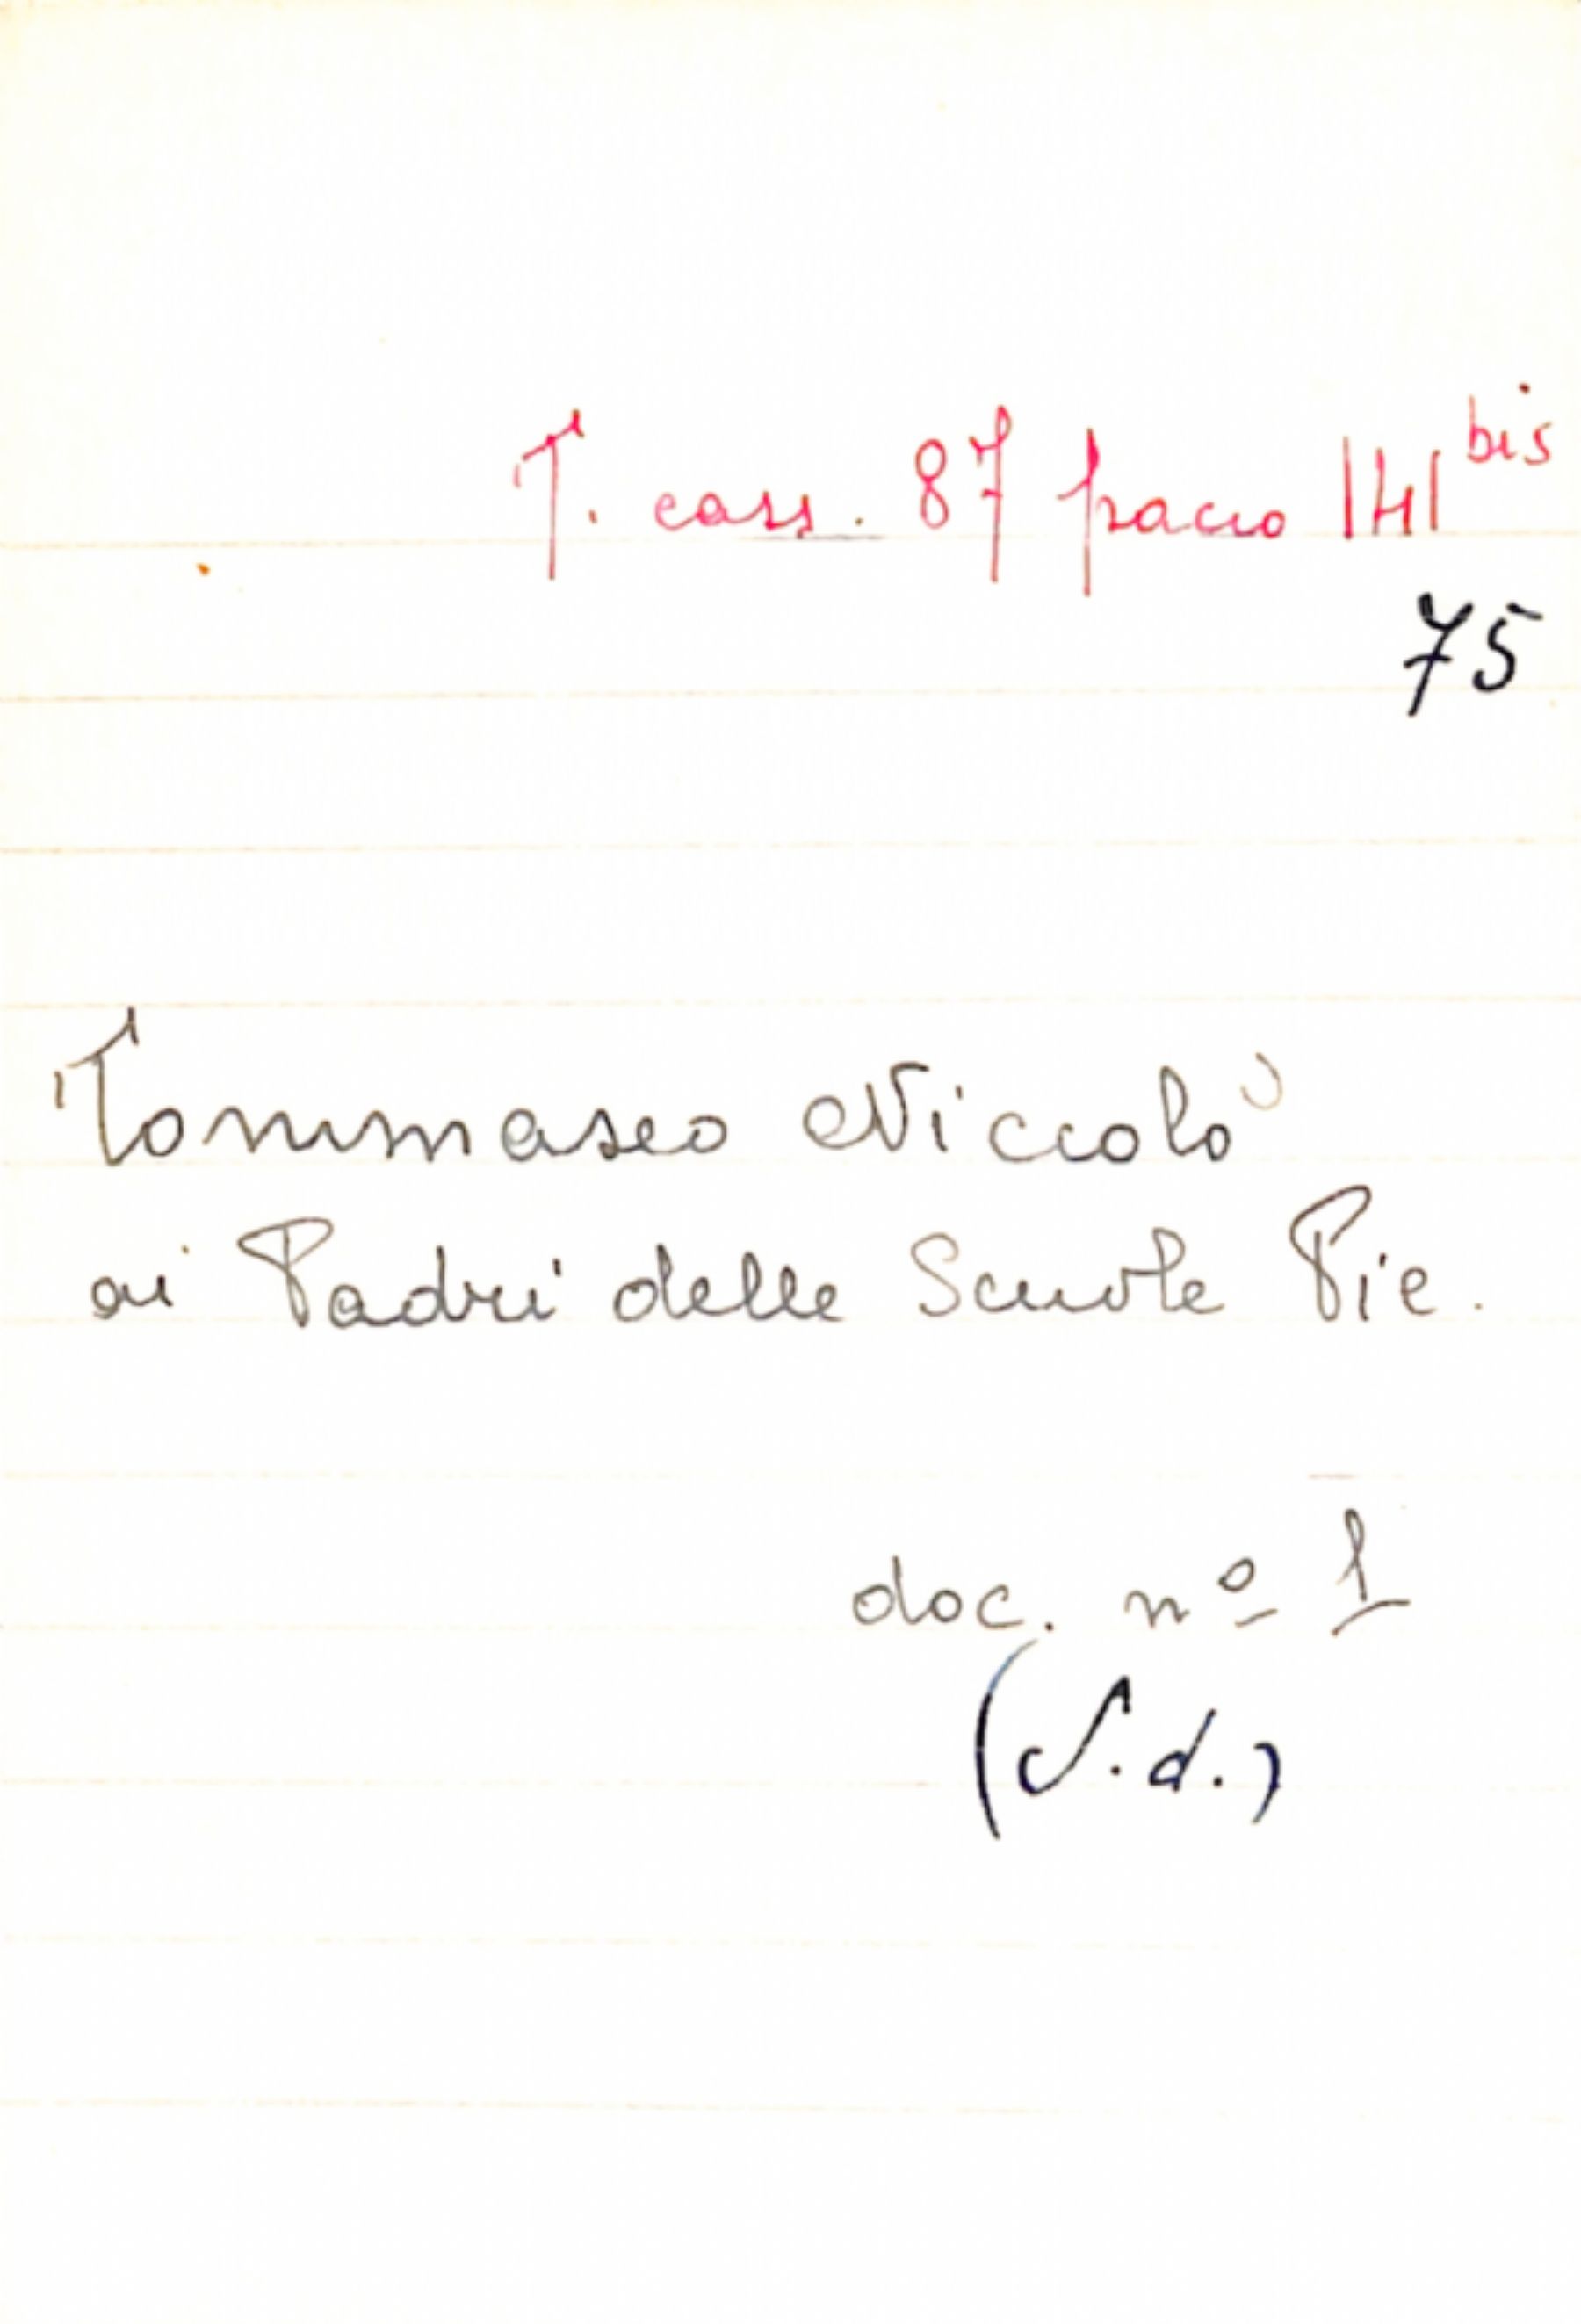 T. cass. 87 pacco 141 bis
75
Tommaseo Niccolò
ai Padri delle Scuole Pie.
doc. nº 1
(S.d.)